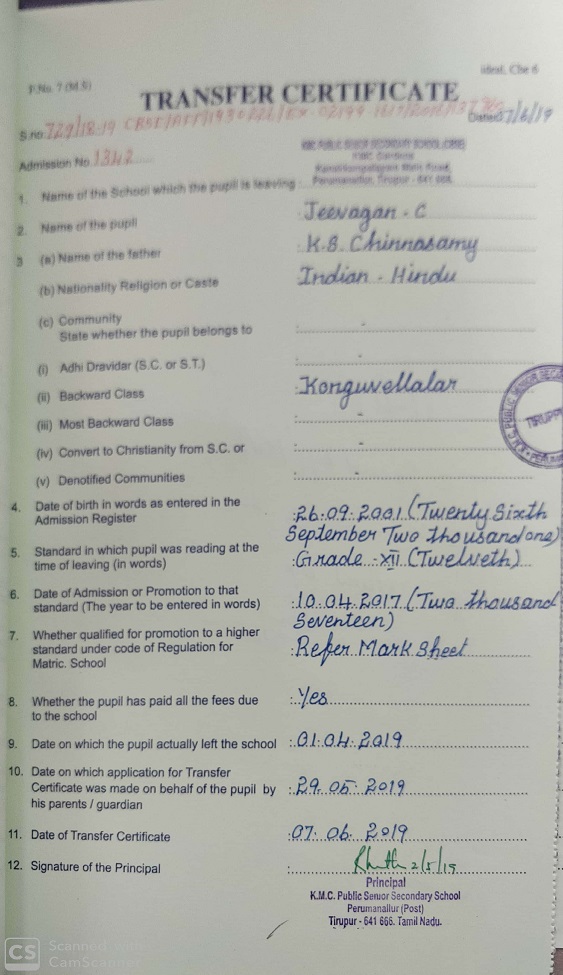 ideal, Che 6
F.No. 7 (M.S)
TRANSFER CERTIFICATE
S.no 729/18-19 CBSE/AFF/1930226/EX-02199
Dated 7/6/19
Admission No 1342
KMC PUBLIC SENIOR SECONDARY SCHOOL (CBSE)
KMC Gardens
Main Road,
Perumanallur, Tirupur - 641 666.
1. Name of the School which the pupil is leaving :
2. Name of the pupil Jeevagan . C
3 (a) Name of the father : K.S. Chinnasamy
(b) Nationality Religion or Caste Indian - Hindu
(c) Community
State whether the pupil belongs to : -
(i) Adhi Dravidar (S.C. or S.T.) : -
(ii) Backward Class Konguvellalar
(iii) Most Backward Class : -
(iv) Convert to Christianity from S.C. or : -
(v) Denotified Communities : -
4. Date of birth in words as entered in the
Admission Register
: 26.09.2001 (Twenty Sixth
September Two thousand one)
5. Standard in which pupil was reading at the
time of leaving (in words)
: Grade - XII (Twelveth)
6. Date of Admission or Promotion to that
standard (The year to be entered in words)
: 10.04.2017 (Two thousand
Seventeen)
7. Whether qualified for promotion to a higher
standard under code of Regulation for
Matric. School
: Refer Mark Sheet
8. Whether the pupil has paid all the fees due
to the school
: Yes
9. Date on which the pupil actually left the school : 01.04.2019
10. Date on which application for Transfer
Certificate was made on behalf of the pupil by
his parents / guardian
: 29.05.2019
11. Date of Transfer Certificate : 07.06.2019
12. Signature of the Principal :
Principal
K.M.C. Public Senior Secondary School
Perumanallur (Post)
Tirupur - 641 666. Tamil Nadu.
CS Scanned with
CamScanner